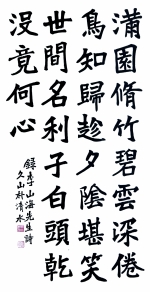 滿園脩竹碧雲深倦
鳥知歸趁夕陰堪笑
世間名利子白頭乾
沒竟何心
錄李山海先生詩
久山朴清水